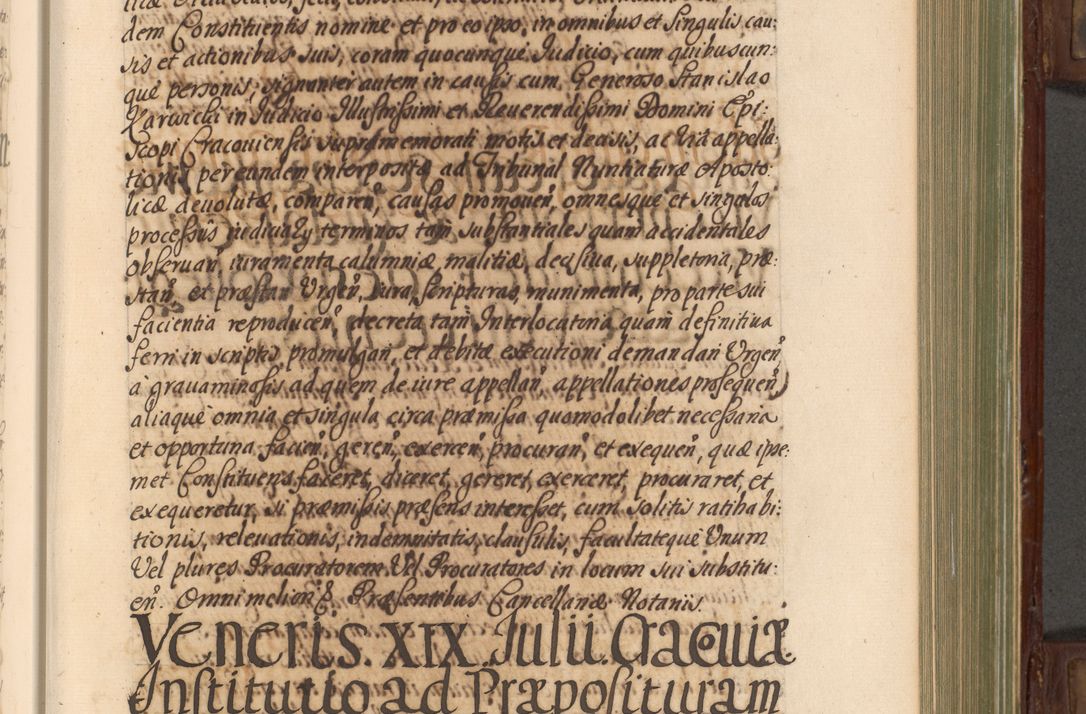 dem Constituentis nomine et pro eo ipso, in omnibus et singulis cau:
sis et actionibus suis, coram quocunque Iudicio, cum quibuscun:
que personis, signanter autem in causis cum Generoso Stanislao
Karwicki in Iudicio Illustrissimi et Reuerendissimi Domini Epi:
scopi Cracouiensis supramemorati motis et decisis, ac via appella:
tionis per eundem interpositæ ad Tribunal Nuntiaturæ Aposto:
licæ deuolutæ, comparen, causas promouen, omnesque et singulos
processus iudiciales terminos tam substantiales quam accidentales
obseruan, iuramenta calumniæ, malitiæ, decisiua, suppletoria, præ:
stan, et præstari Urgen, Iura, scripturas, munimenta, pro parte sui
facientia reproducen, decreta tam Interlocutoria quam definitiua
ferri in scriptis promulgari, et debitæ executioni demandari Urgen,
à grauaminosis ad quem de iure appellan, appellationes prosequen,
aliaque omnia et singula circa præmissa quomodolibet necessaria
et opportuna facien, geren, exercen, procuran, et exequen, quæ ipse:
met Constituens faceret, diceret, gereret, exerceret, procuraret, et
exequeretur, si præmissis præsens interesset, cum solitis ratihabi:
tionis, releuationis, indemnitatis, clausulis, facultateque Unum
Vel plures Procuratorem Vel Procuratores in locum sui substitu:
en. Omni meliori Præsentibus Cancellariæ Notariis.
Veneris. XIX. Iulii. Cracuiæ
Institutio ad Præposituram